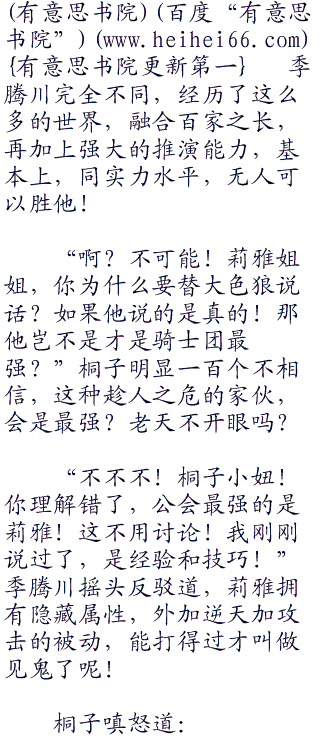 (有意思书院)(百度“有意思
书院”)(www.heihei66.com)
{有意思书院更新第一} 季
腾川完全不同，经历了这么
多的世界，融合百家之长，
再加上强大的推演能力，基
本上，同实力水平，无人可
以胜他！
“啊？不可能！莉雅姐
姐，你为什么要替大色狼说
话？如果他说的是真的！那
他岂不是才是骑士团最
强？”桐子明显一百个不相
信，这种趁人之危的家伙，
会是最强？老天不开眼吗？
“不不不！桐子小妞！
你理解错了，公会最强的是
莉雅！这不用讨论！我刚刚
说过了，是经验和技巧！”
季腾川摇头反驳道，莉雅拥
有隐藏属性，外加逆天加攻
击的被动，能打得过才叫做
见鬼了呢！
桐子嗔怒道：